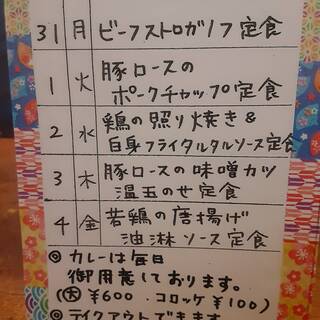 31 月 ビーフストロガノフ定食
1 火 豚ロースの
ポークチャップ定食
2 水 鶏の照り焼き&
白身フライタルタルソース定食
3 木 豚ロースの味噌カツ
温玉のせ定食
4 金 若鶏の唐揚げ
油淋ソース定食
◎カレーは毎日
御用意しております。
(大 ¥600. コロッケ ¥100)
◎テイクアウトできます